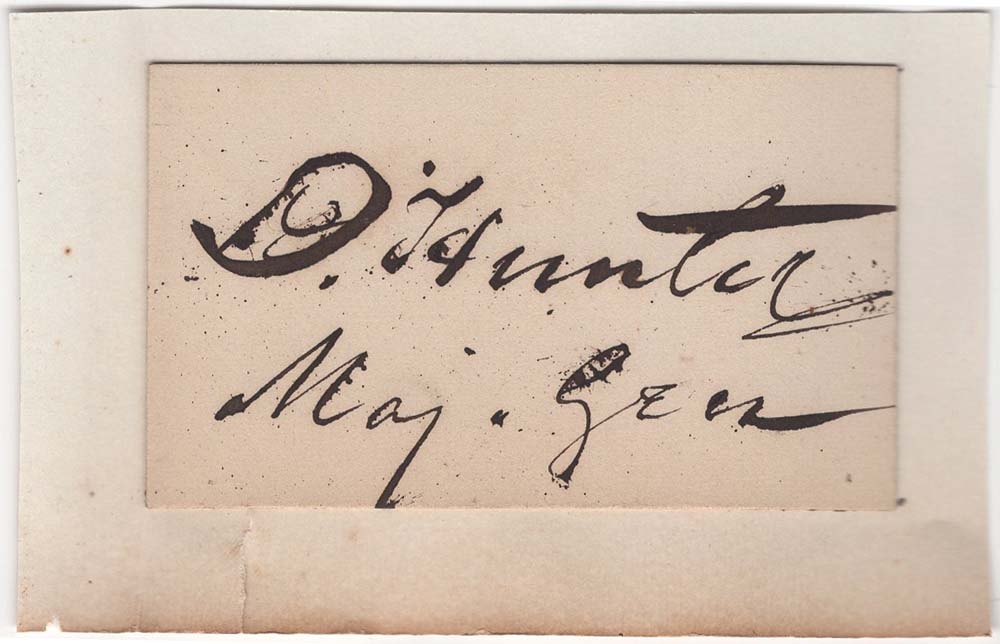 D. Hunter
Maj. Gen